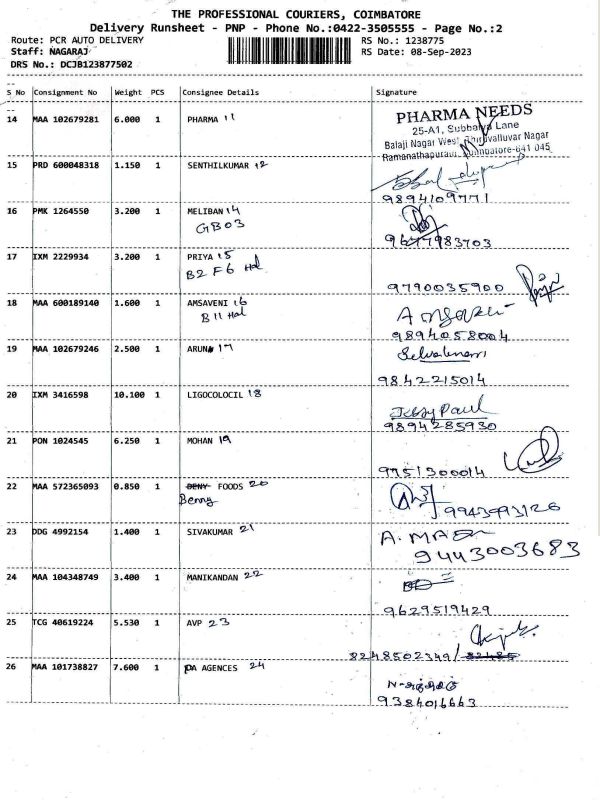 THE PROFESSIONAL COURIERS, COIMBATORE
Delivery Runsheet - PNP - Phone No.:0422-3505555 - Page No.:2
Route: PCR AUTO DELIVERY RS No.: 1238775
Staff: NAGARAJ RS Date: 08-Sep-2023
DRS No.: DCJB123877502
S No Consignment No Weight PCS Consignee Details Signature
14 MAA 102679281 6.000 1 PHARMA 11 PHARMA NEEDS
25-A1, Subbaiya Lane
Balaji Nagar West, Thiruvalluvar Nagar
Ramanathapuram, Coimbatore-641 045
15 PRD 600048318 1.150 1 SENTHILKUMAR 12
9894109771
16 PMK 1264550 3.200 1 MELIBAN 14
GB03
9677983703
17 IXM 2229934 3.200 1 PRIYA 15
B2 F6 Hal
9790035900
18 MAA 600189140 1.600 1 AMSAVENI 16
B11 Hal
9894058004
19 MAA 102679246 2.500 1 ARUN 17
9842215014
20 IXM 3416598 10.100 1 LIGOCOLOCIL 18 Jessy Paul
9894285930
21 PON 1024545 6.250 1 MOHAN 19
9751300014
22 MAA 572365093 0.850 1 DENY FOODS 20
Benny
9943993126
23 DDG 4992154 1.400 1 SIVAKUMAR 21
9443003683
24 MAA 104348749 3.400 1 MANIKANDAN 22
9629519429
25 TCG 40619224 5.530 1 AVP 23
8248502349/
26 MAA 101738827 7.600 1 PA AGENCES 24
9384016663